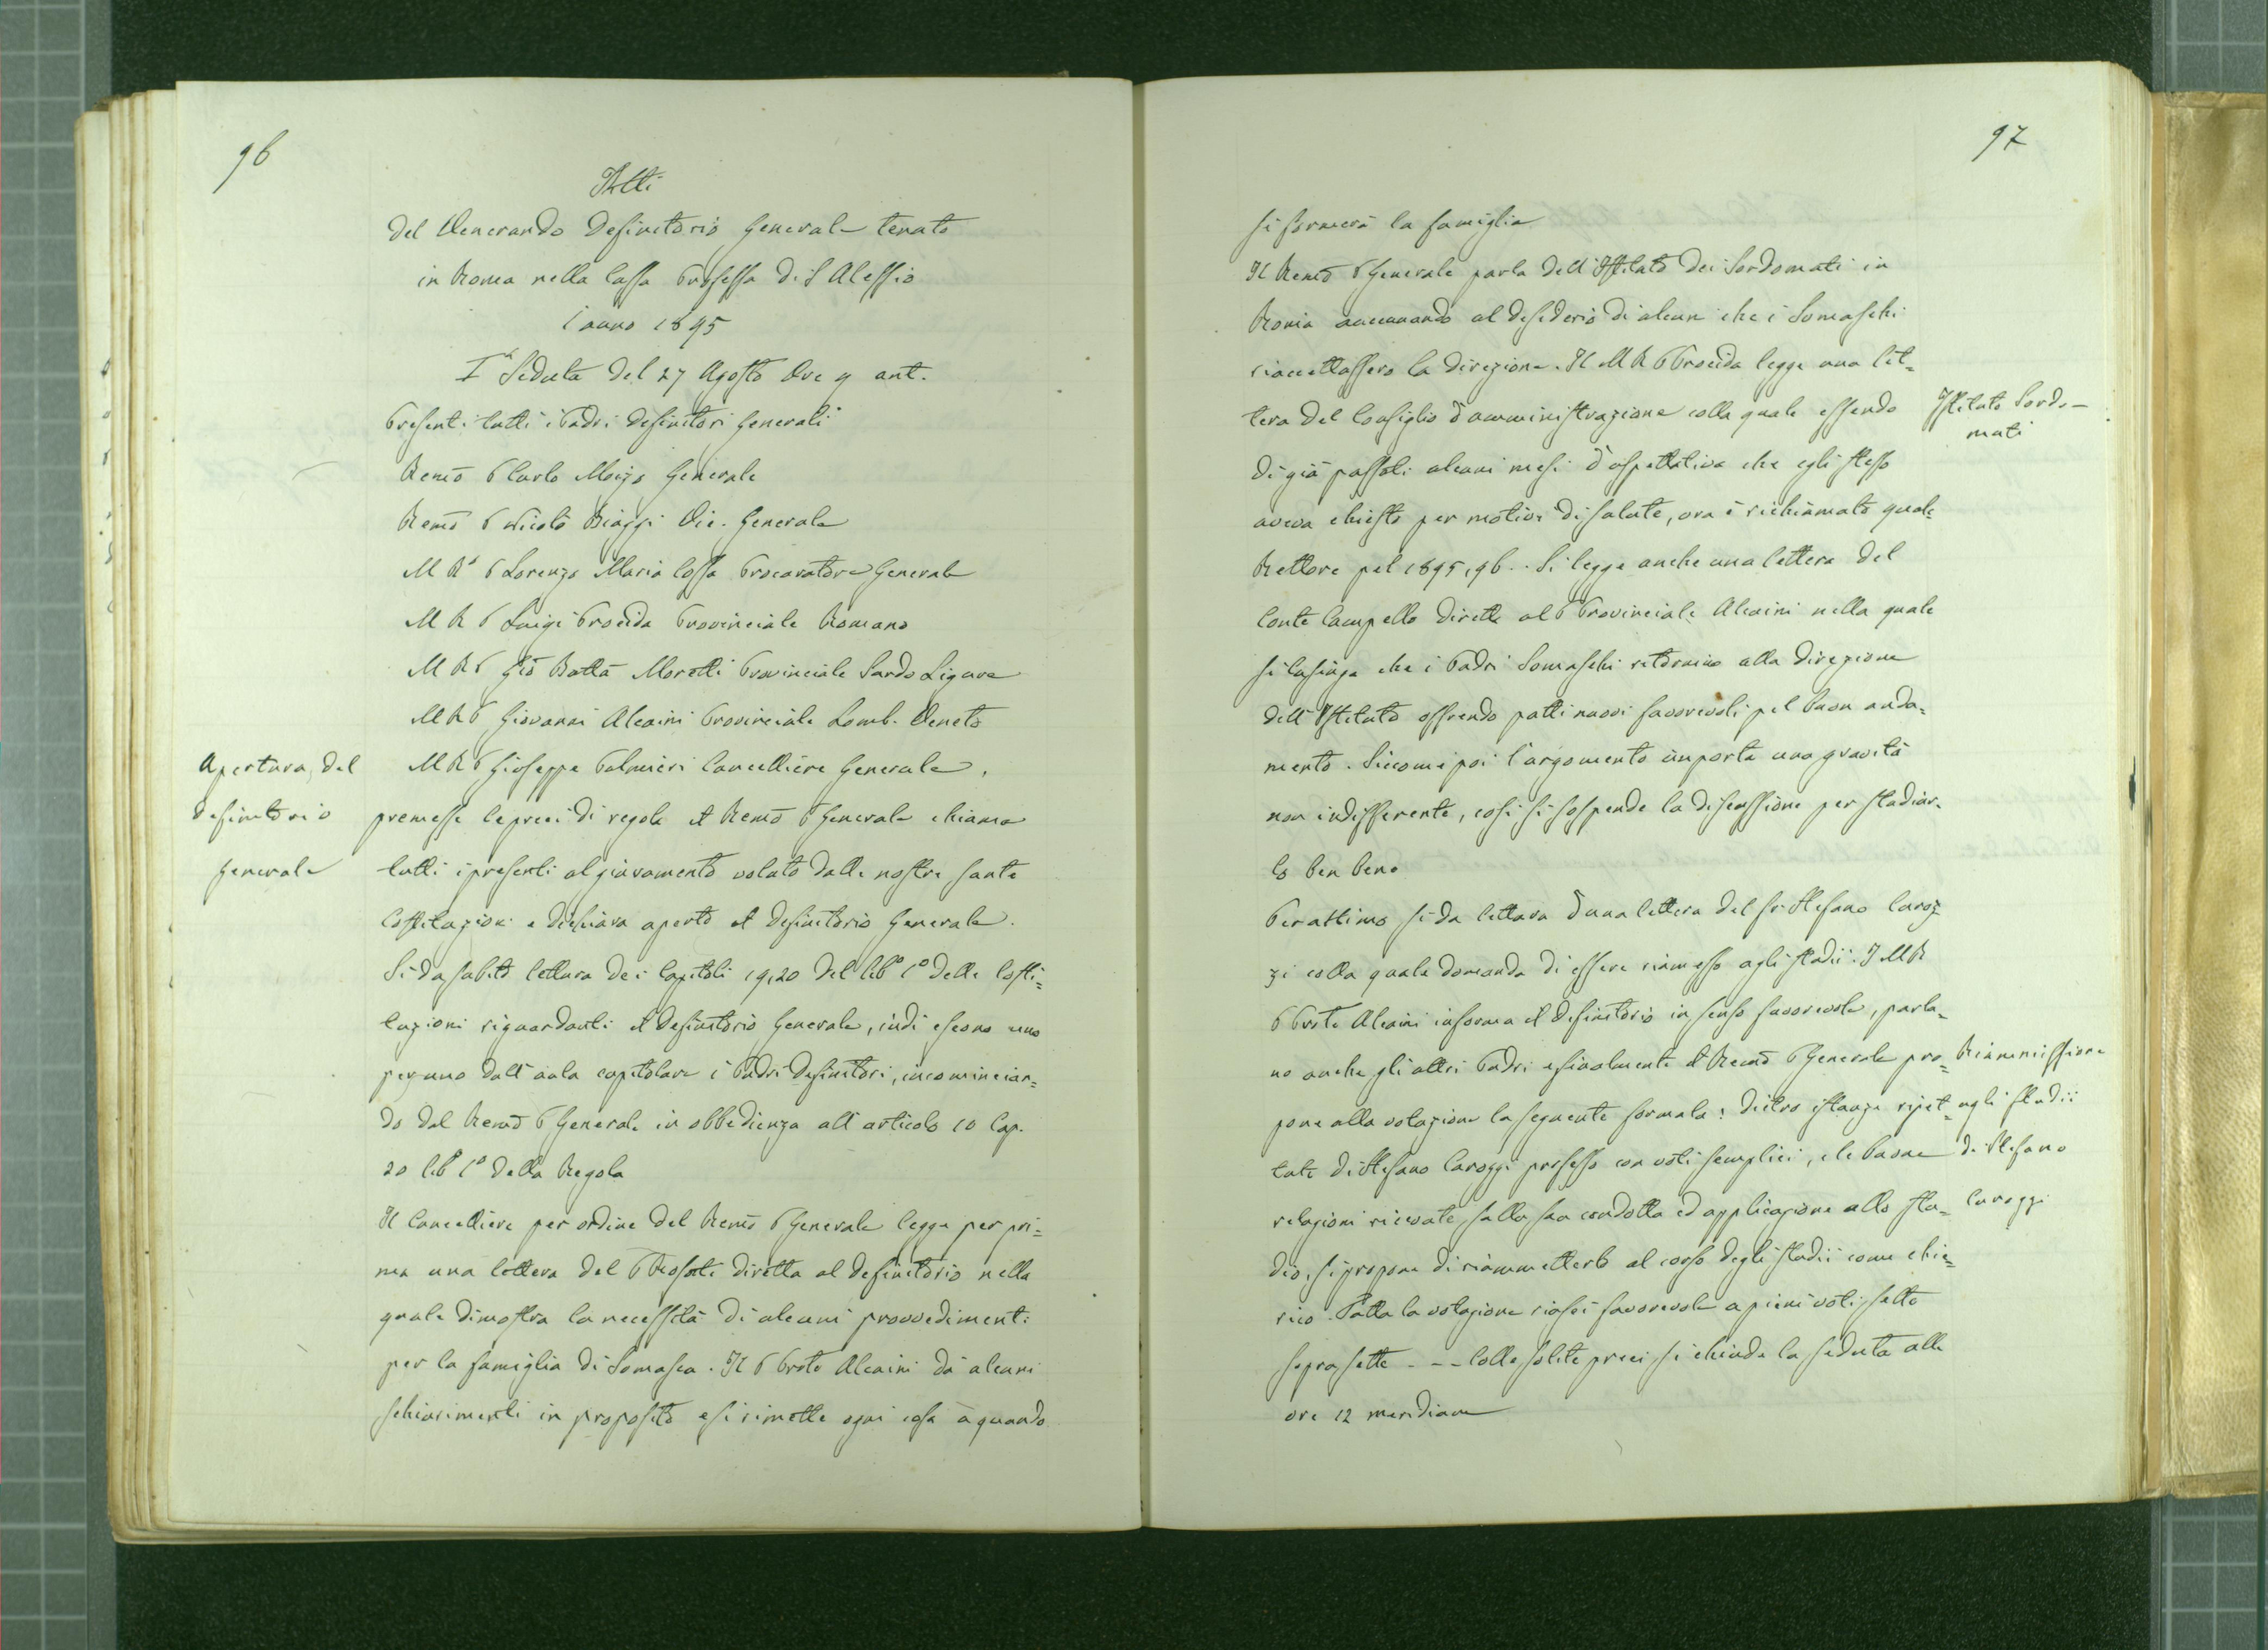 96
Atti
del Venerando Definitorio Generale tenuto
in Roma nella Cassa Professa di S Alessio
l'anno 1895
Iª Seduta del 27 Agosto Ore 9 ant.
Presenti tutti i Padri Definitori Generali
Remo P Carlo Moizo Generale
Remo P Nicolò Biaggi Vic. Generale
M Rº P Lorenzo Maria Cossa Procuratore Generale
M R P Luigi Procida Provinciale Romano
M R P Gio Batta Moretti Provinciale Sardo Ligure
M R P Giovanni Alcaini Provinciale Lomb. Veneto
M R P Giuseppe Palmieri Cancelliere Generale.
Apertura del
definitorio
generale
premesse le preci di regola il Remo P Generale chiama
tutti i presenti al giuramento voluto dalle nostre sante
Costituzioni e dichiara aperto il Definitorio Generale.
Si da subito lettura dei Capitoli 19,20 del libº 1º delle Costi=
tuzioni riguardanti il Definitorio Generale, indi escono uno
per uno dall'aula capitolare i Padri Definitori, incomincian=
do dal Remo P Generale in obbedienza all'articolo 10 Cap.
20 libº 1º della Regola
Il Cancelliere per ordine del Remo P Generale legge per pri=
ma una lettera del P Rosati diretta al Definitorio nella
quale dimostra la necessità di alcuni provvedimenti
per la famiglia di Somasca. Il P Prote Alcaini dà alcuni
schiarimenti in proposito e si rimette ogni cosa a quando
97
si formerà la famiglia
Il Remo P Generale parla dell'Istituto dei Sordomuti in
Roma accennando al desiderio di alcuni che i Somaschi
riaccettassero la direzione. Il M R P Procida legge una let=
tera del Consiglio d'amministrazione colla quale essendo
Istituto Sordo-
muti
di già passati alcuni mesi d'aspettativa che egli stesso
aveva chiesto per motivi di salute, ora è richiamato quale
Rettore pel 1895,96.. Si legge anche una lettera del
Conte Campello diretta al P Provinciale Alcaini nella quale
si lusinga che i Padri Somaschi ritornino alla direzione
dell'Istituto offrendo patti nuovi favorevoli pel buon anda=
mento. Siccome poi l'argomento importa una gravità
non indifferente, così si sospende la discussione per studiar=
lo ben bene
Per ultimo si da lettura d'una lettera del sr Stefano Caroz
zi colla quale domanda di essere riamesso agli studii. I M R
P Prote Alcaini informa il Definitorio in senso favorevole, parla=
no anche gli altri Padri e finalmente il Remo P Generale pro=
Riammissione
agli studii
di Stefano
Carozzi
pone alla votazione la seguente formula: Dietro istanze ripet=
tute di Stefano Carozzi professo con voti semplici, e le buone
relazioni ricevute sulla sua condotta ed applicazione allo stu=
dio, si propone di riammetterlo al corso degli studii come chie=
rico. Fatta la votazione riuscì favorevole a pieni voti, sette
sopra sette - - - Colle solite preci si chiude la seduta alle
ore 12 meridiane